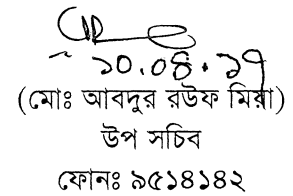 ১০.০৪.১৭
(মোঃ আবদুর রউফ মিয়া)
উপ সচিব
ফোনঃ ৯৫১৪১৪২